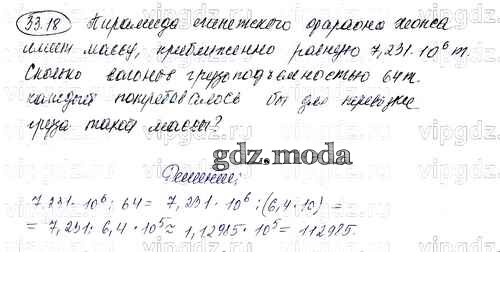 33.18 Пирамида египетского фараона хеопса
имеет массу, приближенно равную 7,231·10⁶ т.
Сколько вагонов грузоподъемностью 64т.
каждый потребовалось бы для перевозки
груза такой массы?
gdz.moda
Решение:
7,231·10⁶ : 64 = 7,231·10⁶ : (6,4·10) =
= 7,231 : 6,4 · 10⁵ ≈ 1,12985·10⁵ = 112985.